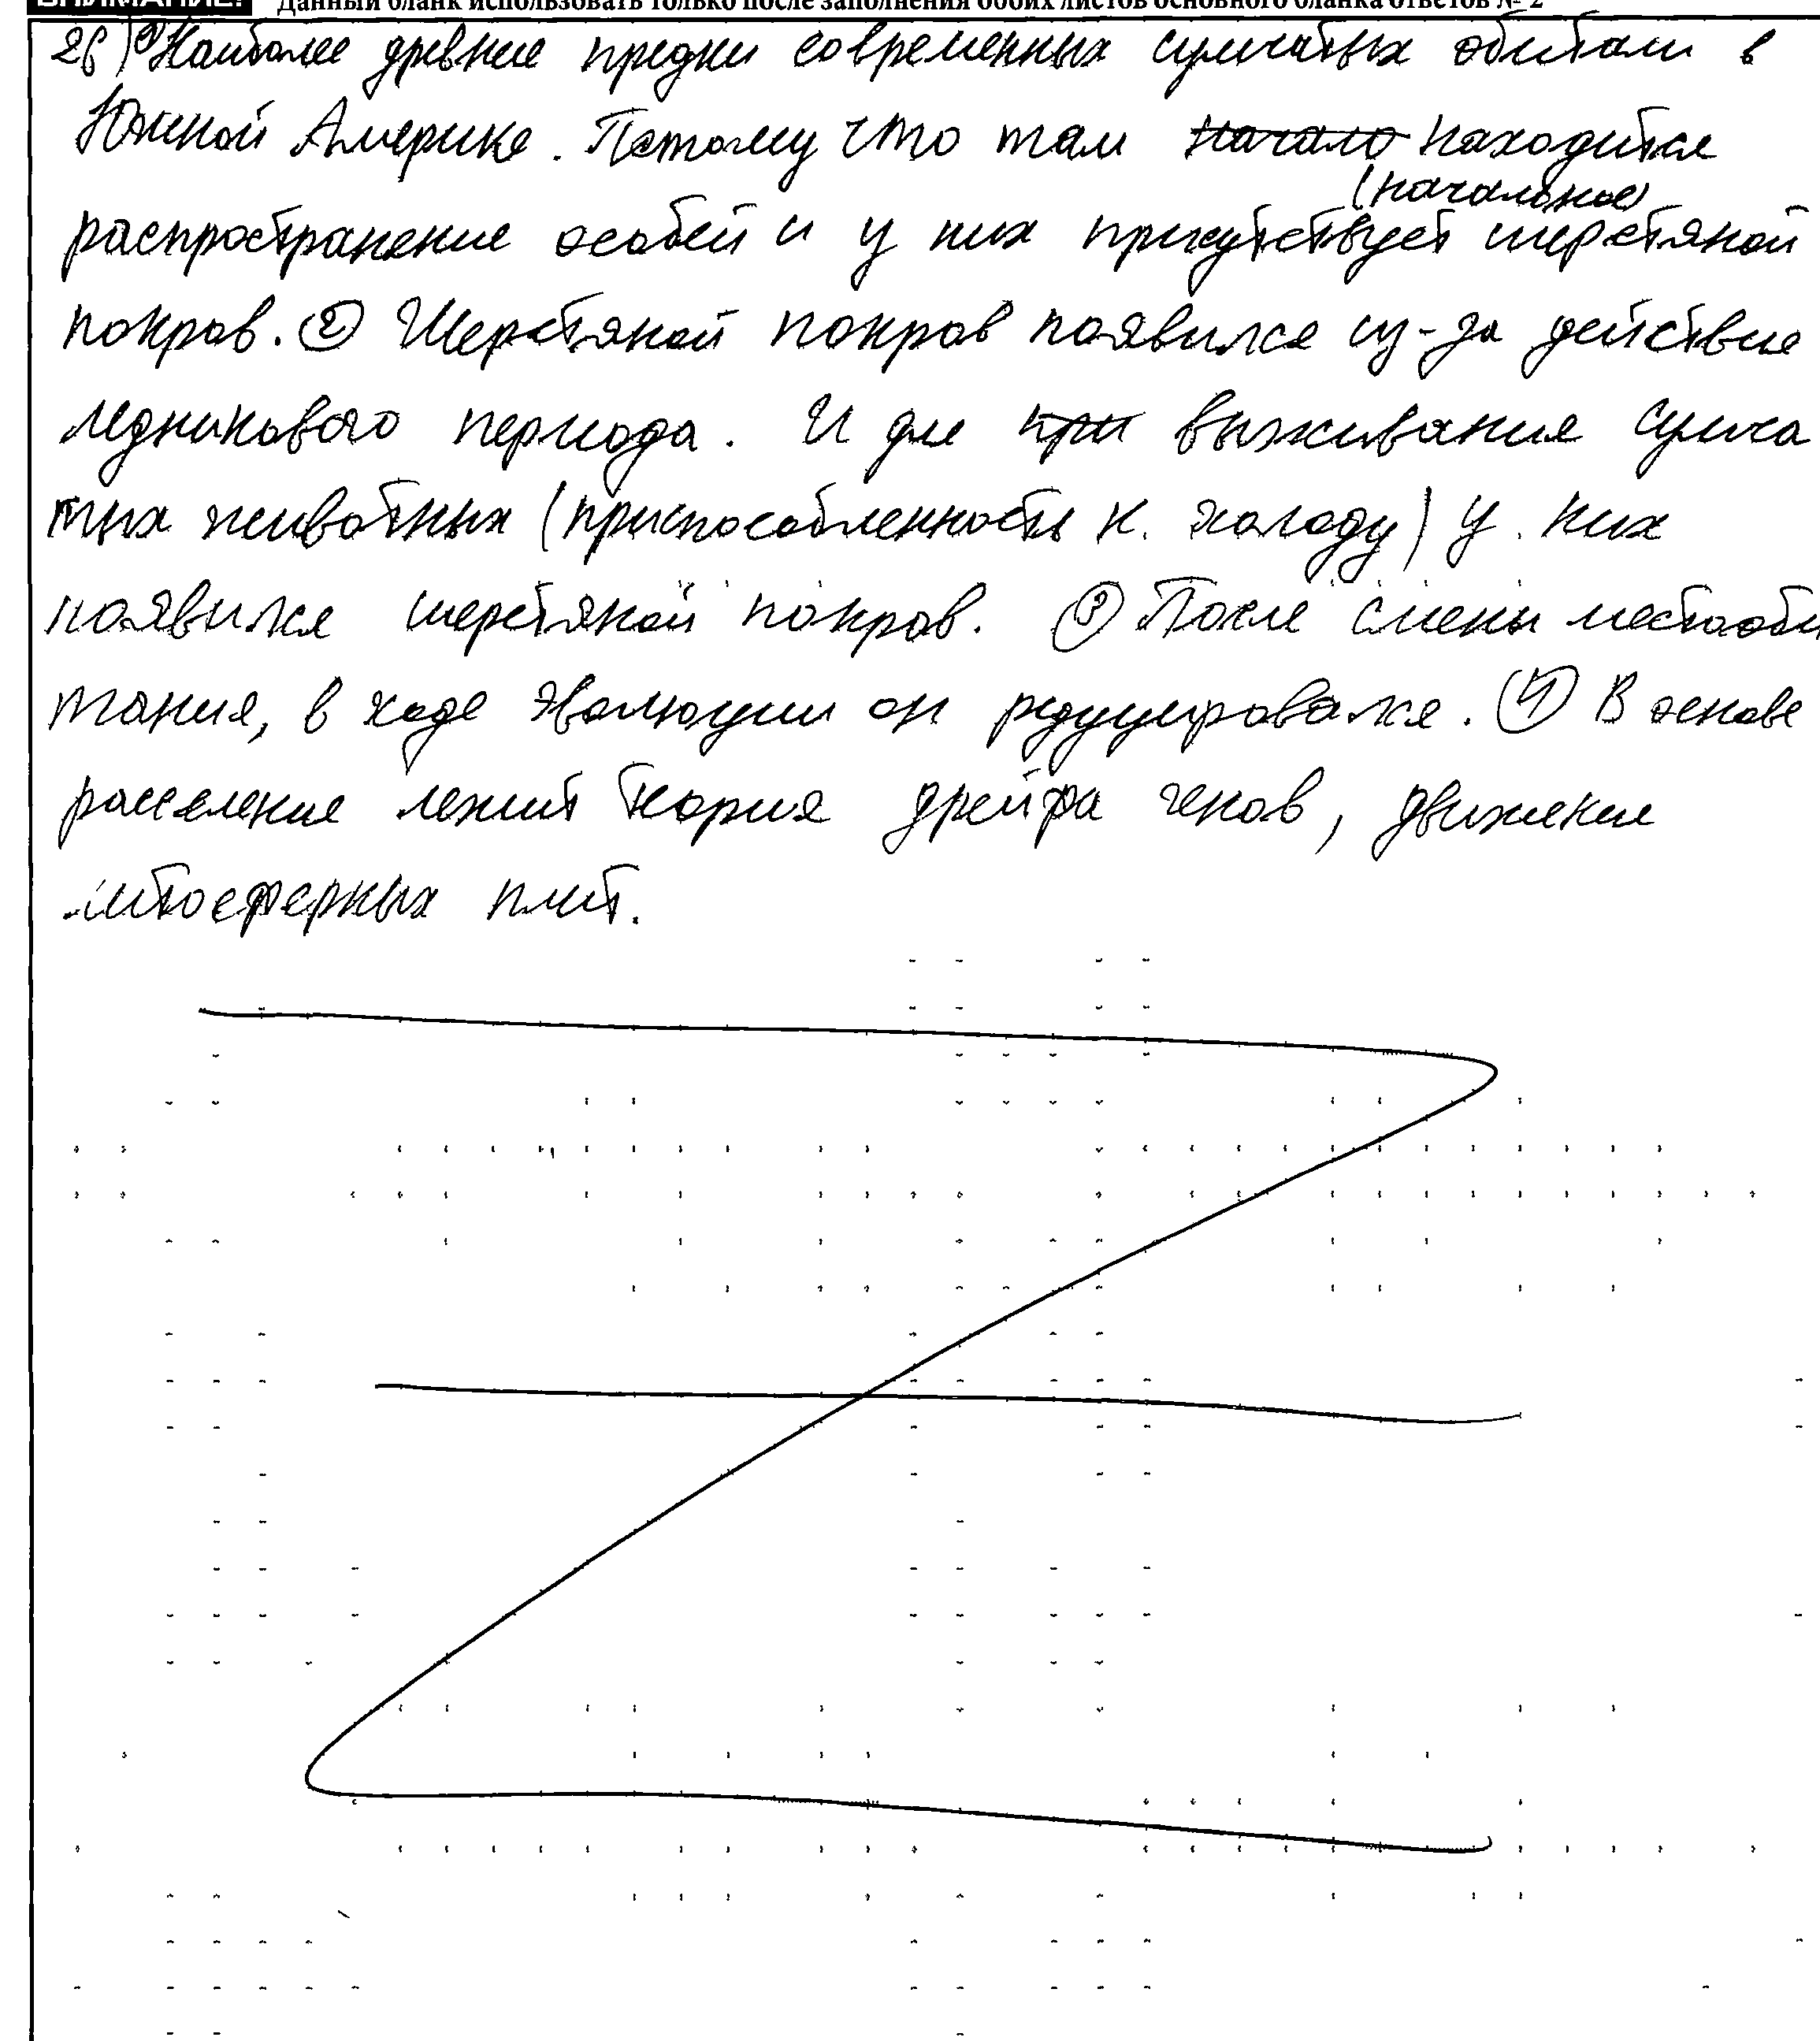 Данный бланк использовать только после заполнения обоих листов основного бланка ответов № 2
26) ① Наиболее древние предки современных сумчатых обитали в
Южной Америке. Потому что там начало находится
(начальное)
распространение особей и у них присутствует шерстяной
покров. ② Шерстяной покров появился из-за действие
ледникового периода. И для при выживания сумча
тых животных (приспособленность к. холоду) у. них
появился шерстяной покров. ③ После смены местооби
тания, в ходе эволюции он редуцировался. ④ В основе
расселение лежит теория дрейфа генов, движение
литосферных плит.